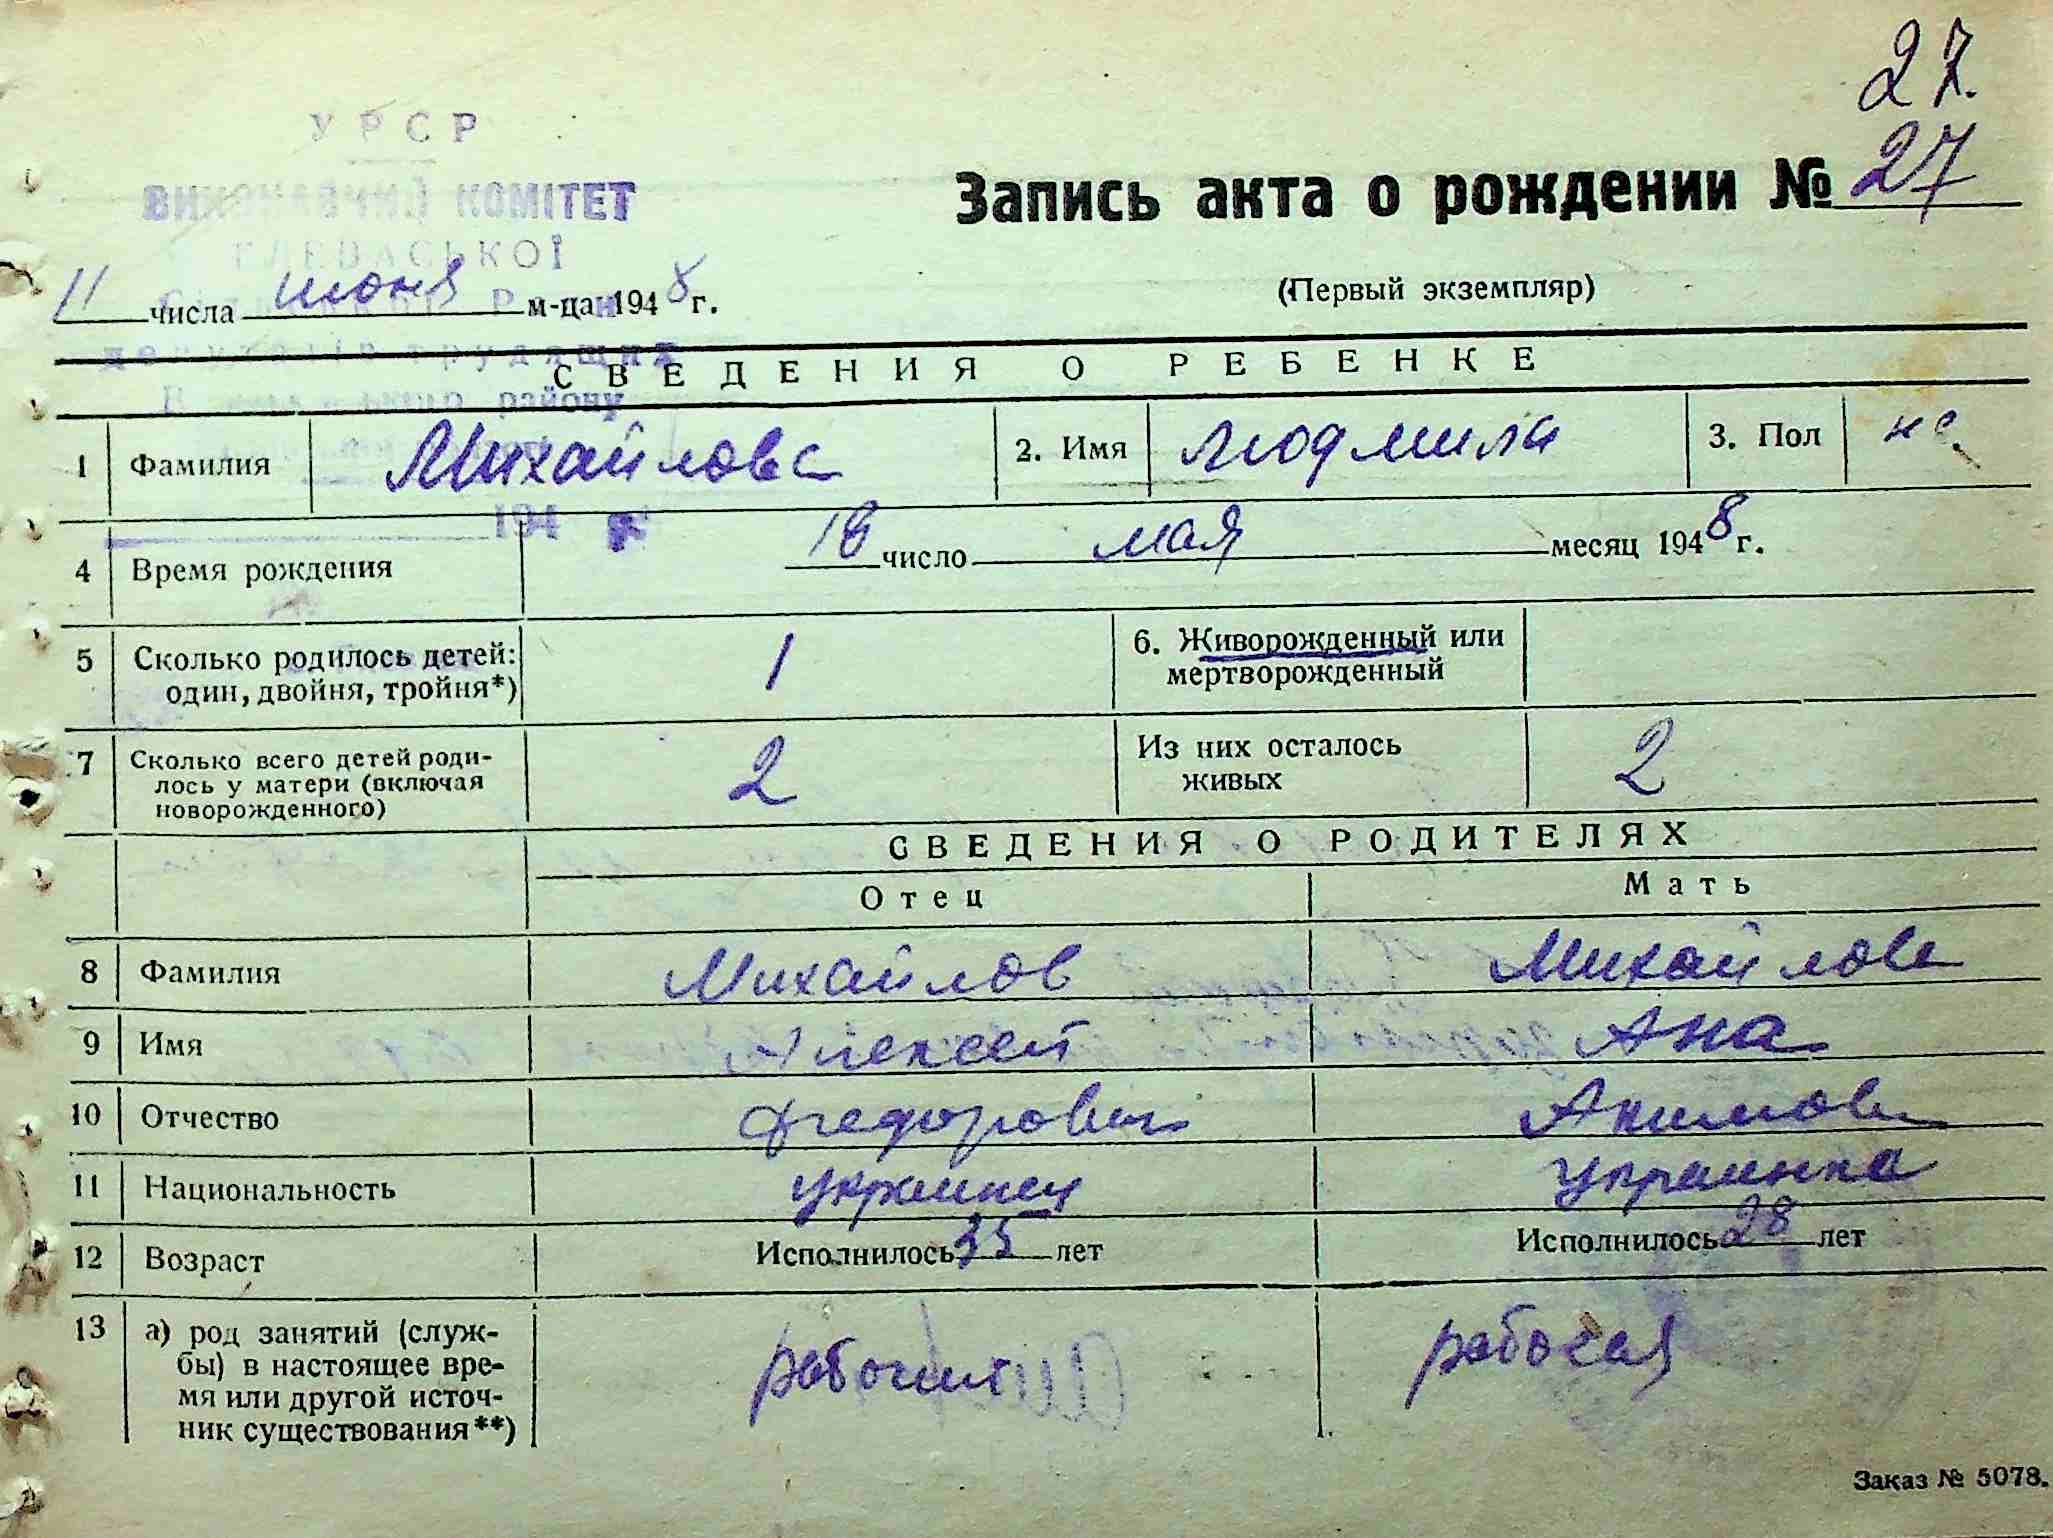 27.
УРСР
ВИКОНАВЧИЙ КОМІТЕТ
Запись акта о рождении № 27
ЕЛЕВАСЬКОЇ
11 числа июня м-ца 1948 г.
(Первый экземпляр)
депутатів трудящих
району
СВЕДЕНИЯ О РЕБЕНКЕ
1 Фамилия Михайлова 2. Имя Людмила 3. Пол
194
4 Время рождения 18 число мая месяц 1948 г.
5 Сколько родилось детей: 1 6. Живорожденный или
один, двойня, тройня*) мертворожденный
7 Сколько всего детей роди- 2 Из них осталось 2
лось у матери (включая живых
новорожденного)
СВЕДЕНИЯ О РОДИТЕЛЯХ
Отец Мать
8 Фамилия Михайлов Михайлова
9 Имя Алексей Ана
10 Отчество Федорович Акимовн
11 Национальность украинец украинка
12 Возраст Исполнилось 35 лет Исполнилось 28 лет
13 а) род занятий (служ- рабочий рабочая
бы) в настоящее вре-
мя или другой источ-
ник существования**)
Заказ № 5078.